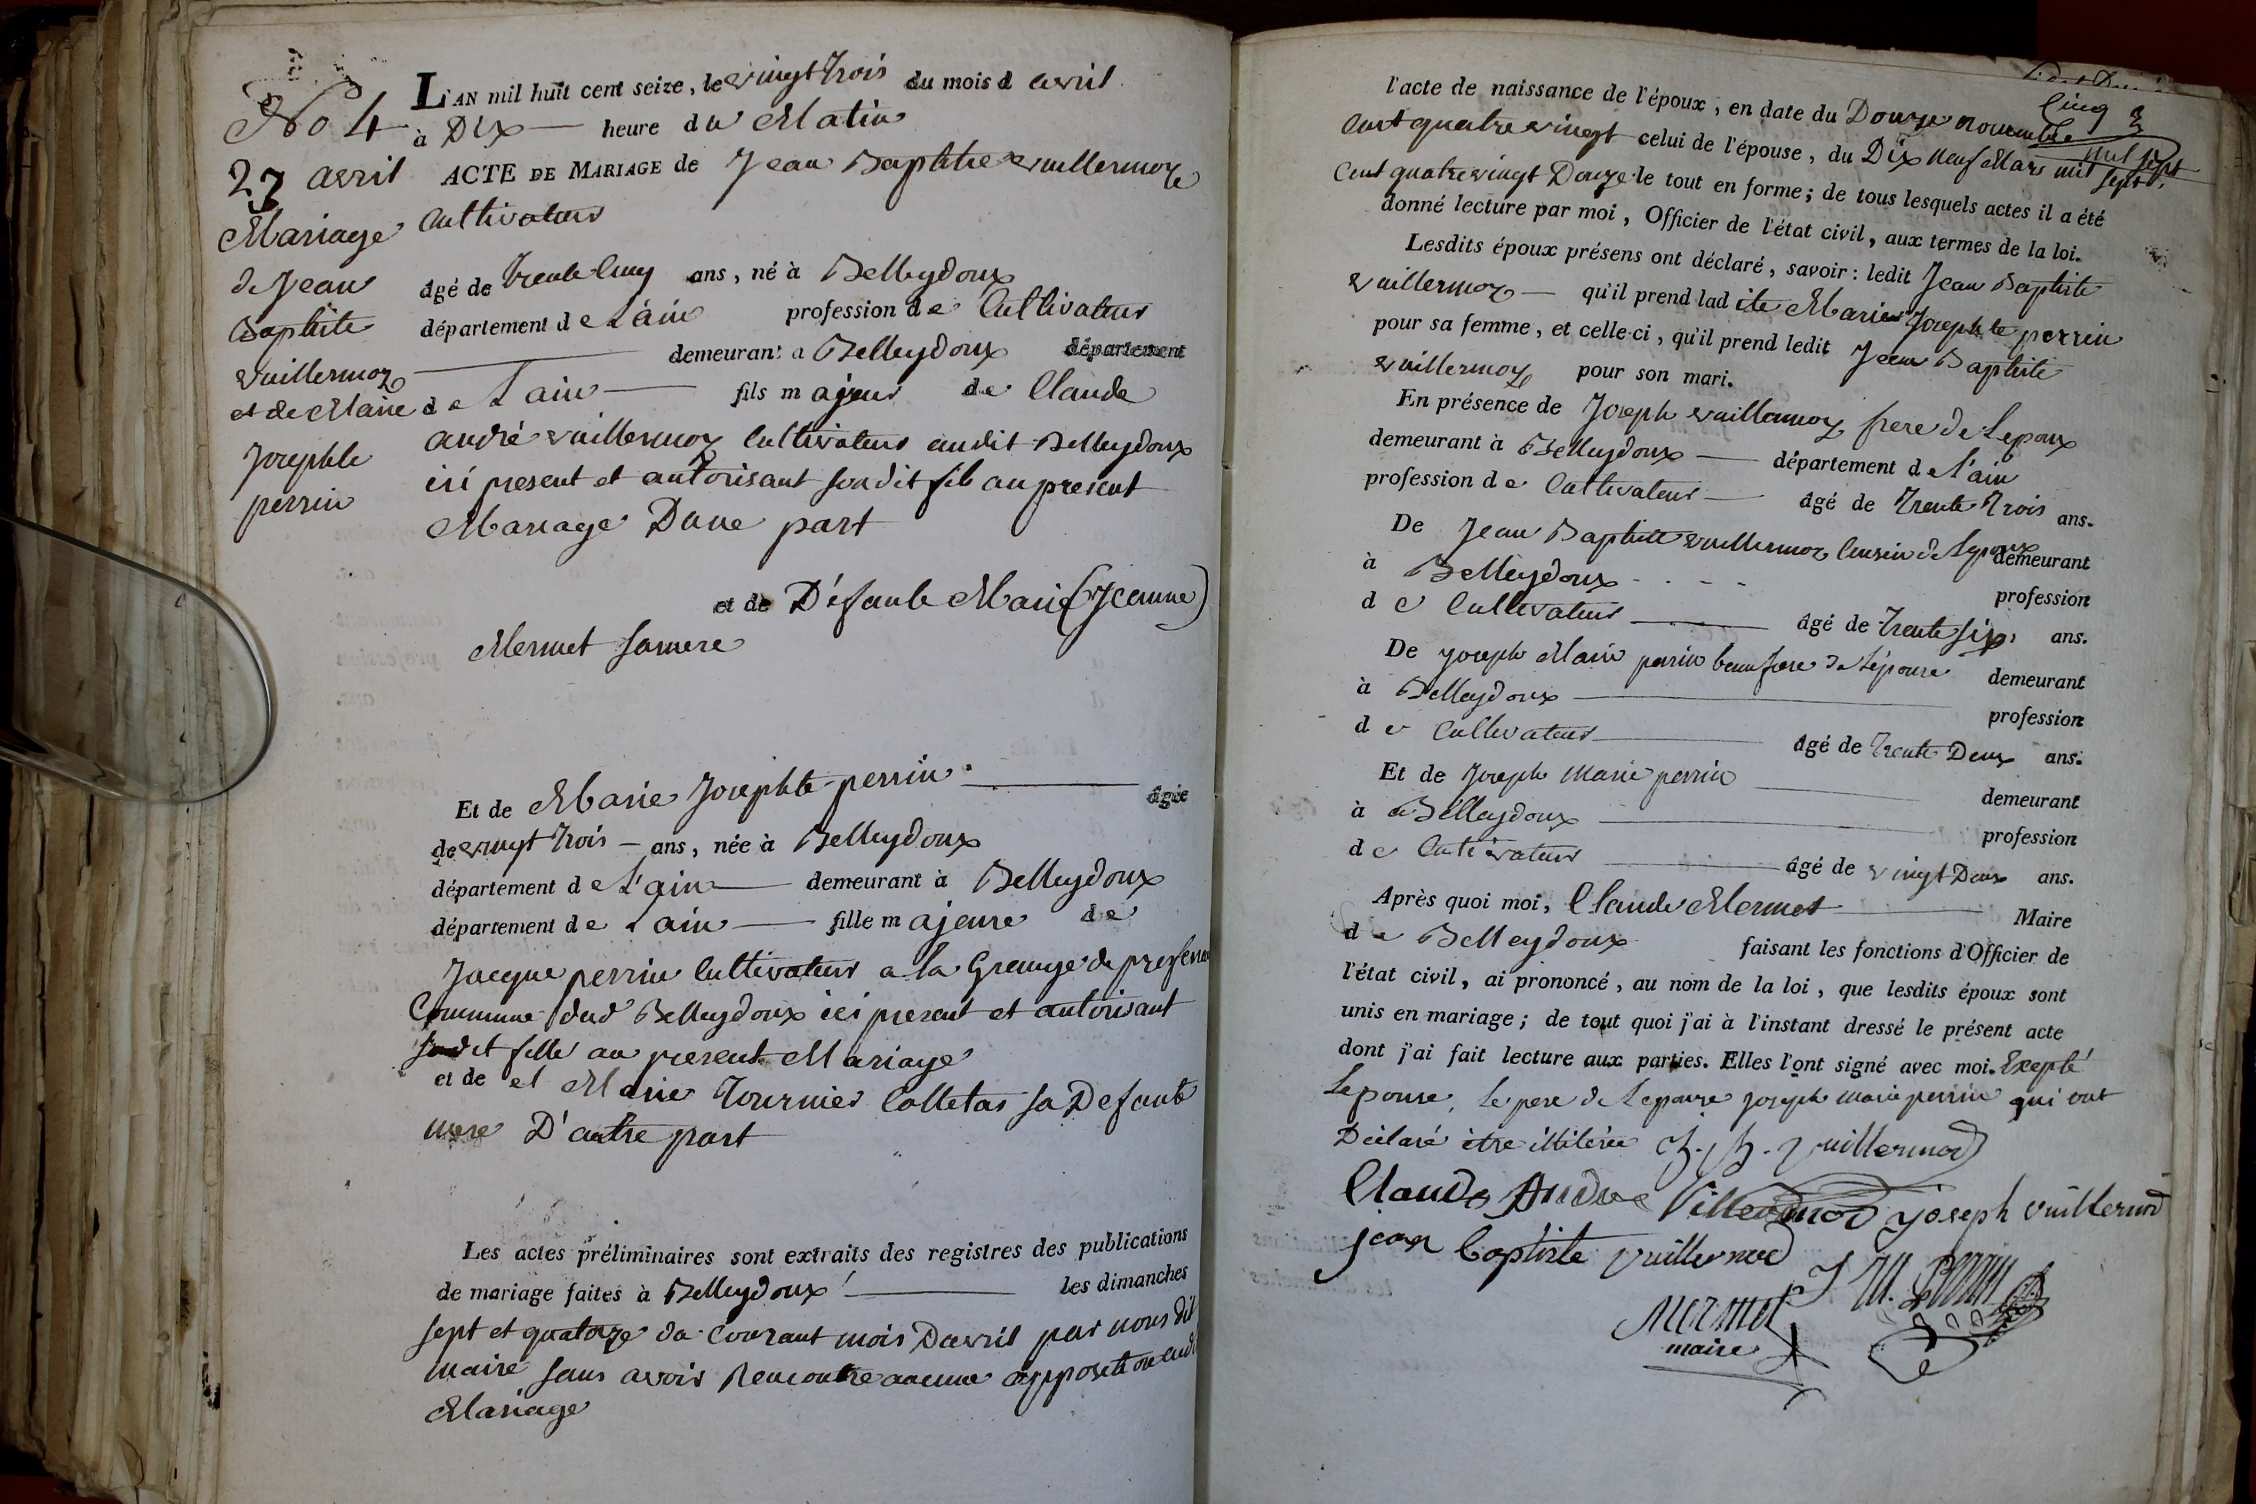 No 4
23 avril
Mariage
de Jean
Baptiste
vuillermoz
et de Marie
Josephte
perrin
L'AN mil huit cent seize, le vingt trois du mois d avril
à Dix heure du Matin
ACTE DE MARIAGE de Jean Baptiste vuillermoz
Cultivateur
âgé de trente Cinq ans, né à Belleydoux
département de L'ain profession de Cultivateur
demeurant a Belleydoux département
de L'ain fils majeur de Claude
andré vuillermoz Cultivateur audit Belleydoux
ici present et autorisant son dit fils au present
Mariage Dune part
et de Défunte Marie (Jeanne)
Mermet sa mere
Et de Marie Josephte perrin âgée
de vingt trois ans, née à Belleydoux
département de L'ain demeurant à Belleydoux
département de Lain fille majeure de
Jacque perrin Cultivateur a la Grange de
Commune dud Belleydoux ici present et autorisant
sadit fille au present Mariage
et de et Marie Tournier Colletas sa Defunte
mere D'autre part
Les actes préliminaires sont extraits des registres des publications
de mariage faites à Belleydoux les dimanches
sept et quatorze du Courant mois Davril par nous dit
maire sans avoir Rencontré aucune opposition audit
Mariage
Cinq
l'acte de naissance de l'époux, en date du Douze novembre mil sept
Cent quatre vingt celui de l'épouse, du Dix neuf Mars mil sept
Cent quatrevingt Douze le tout en forme; de tous lesquels actes il a été
donné lecture par moi, Officier de l'état civil, aux termes de la loi.
Lesdits époux présens ont déclaré, savoir: ledit Jean Baptiste
vuillermoz qu'il prend ladite Marie Josephte perrin
pour sa femme, et celle-ci, qu'il prend ledit Jean Baptiste
vuillermoz pour son mari.
En présence de Joseph vuillermoz frere de Lepoux
demeurant à Belleydoux département de L'ain
profession de Cultivateur âgé de trente trois ans.
De Jean Baptiste vuillermoz Cousin de Lepoux demeurant
à Belleydoux profession
de Cultivateur âgé de trente six ans.
De joseph Marie perrin beaufrere de Lépouse demeurant
à Belleydoux profession
de Cultivateur âgé de trente Deux ans.
Et de Joseph Marie perrin demeurant
à Belleydoux profession
de Cultivateur âgé de vingt Deux ans.
Après quoi moi, Claude Mermet Maire
de Belleydoux faisant les fonctions d'Officier de
l'état civil, ai prononcé, au nom de la loi, que lesdits époux sont
unis en mariage; de tout quoi j'ai à l'instant dressé le présent acte
dont j'ai fait lecture aux parties. Elles l'ont signé avec moi. Excepté
Lepouse, Le pere de Lepouse joseph marie perrin qui ont
Déclaré être illiteree J. B. Vuillermod
Claude Andre Villermod joseph vuillermod
jean baptiste vuillermod
J M. Perrin
Mermet
maire